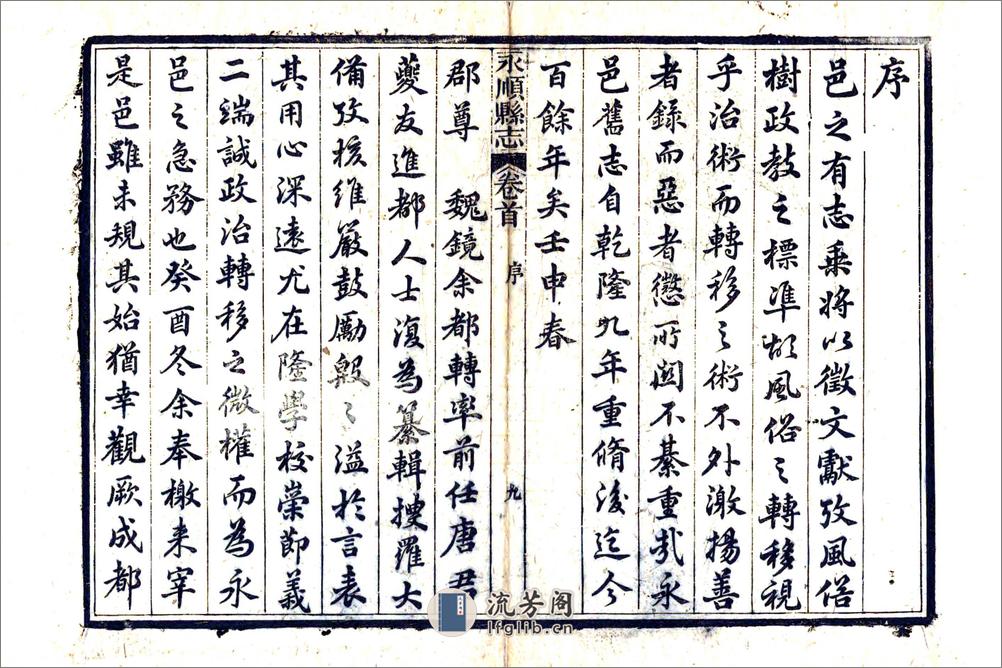 序
邑之有志乘將以徵文獻攷風俗
樹政教之標準故風俗之轉移視
乎治術而轉移之術不外激揚善
者錄而惡者懲所関不綦重哉永
邑舊志自乾隆九年重脩後迄今
百餘年矣壬申春
永順縣志 卷首 序 九
郡尊 魏鏡余都轉率前任唐君
夔友進都人士復為纂輯搜羅大
備攷核維嚴鼓勵殷〻溢於言表
其用心深遠尤在隆學校崇節義
二端誠政治轉移之微權而為永
邑之急務也癸酉冬余奉檄来宰
是邑雖未規其始猶幸觀厥成都
流芳阁
lfglib.cn